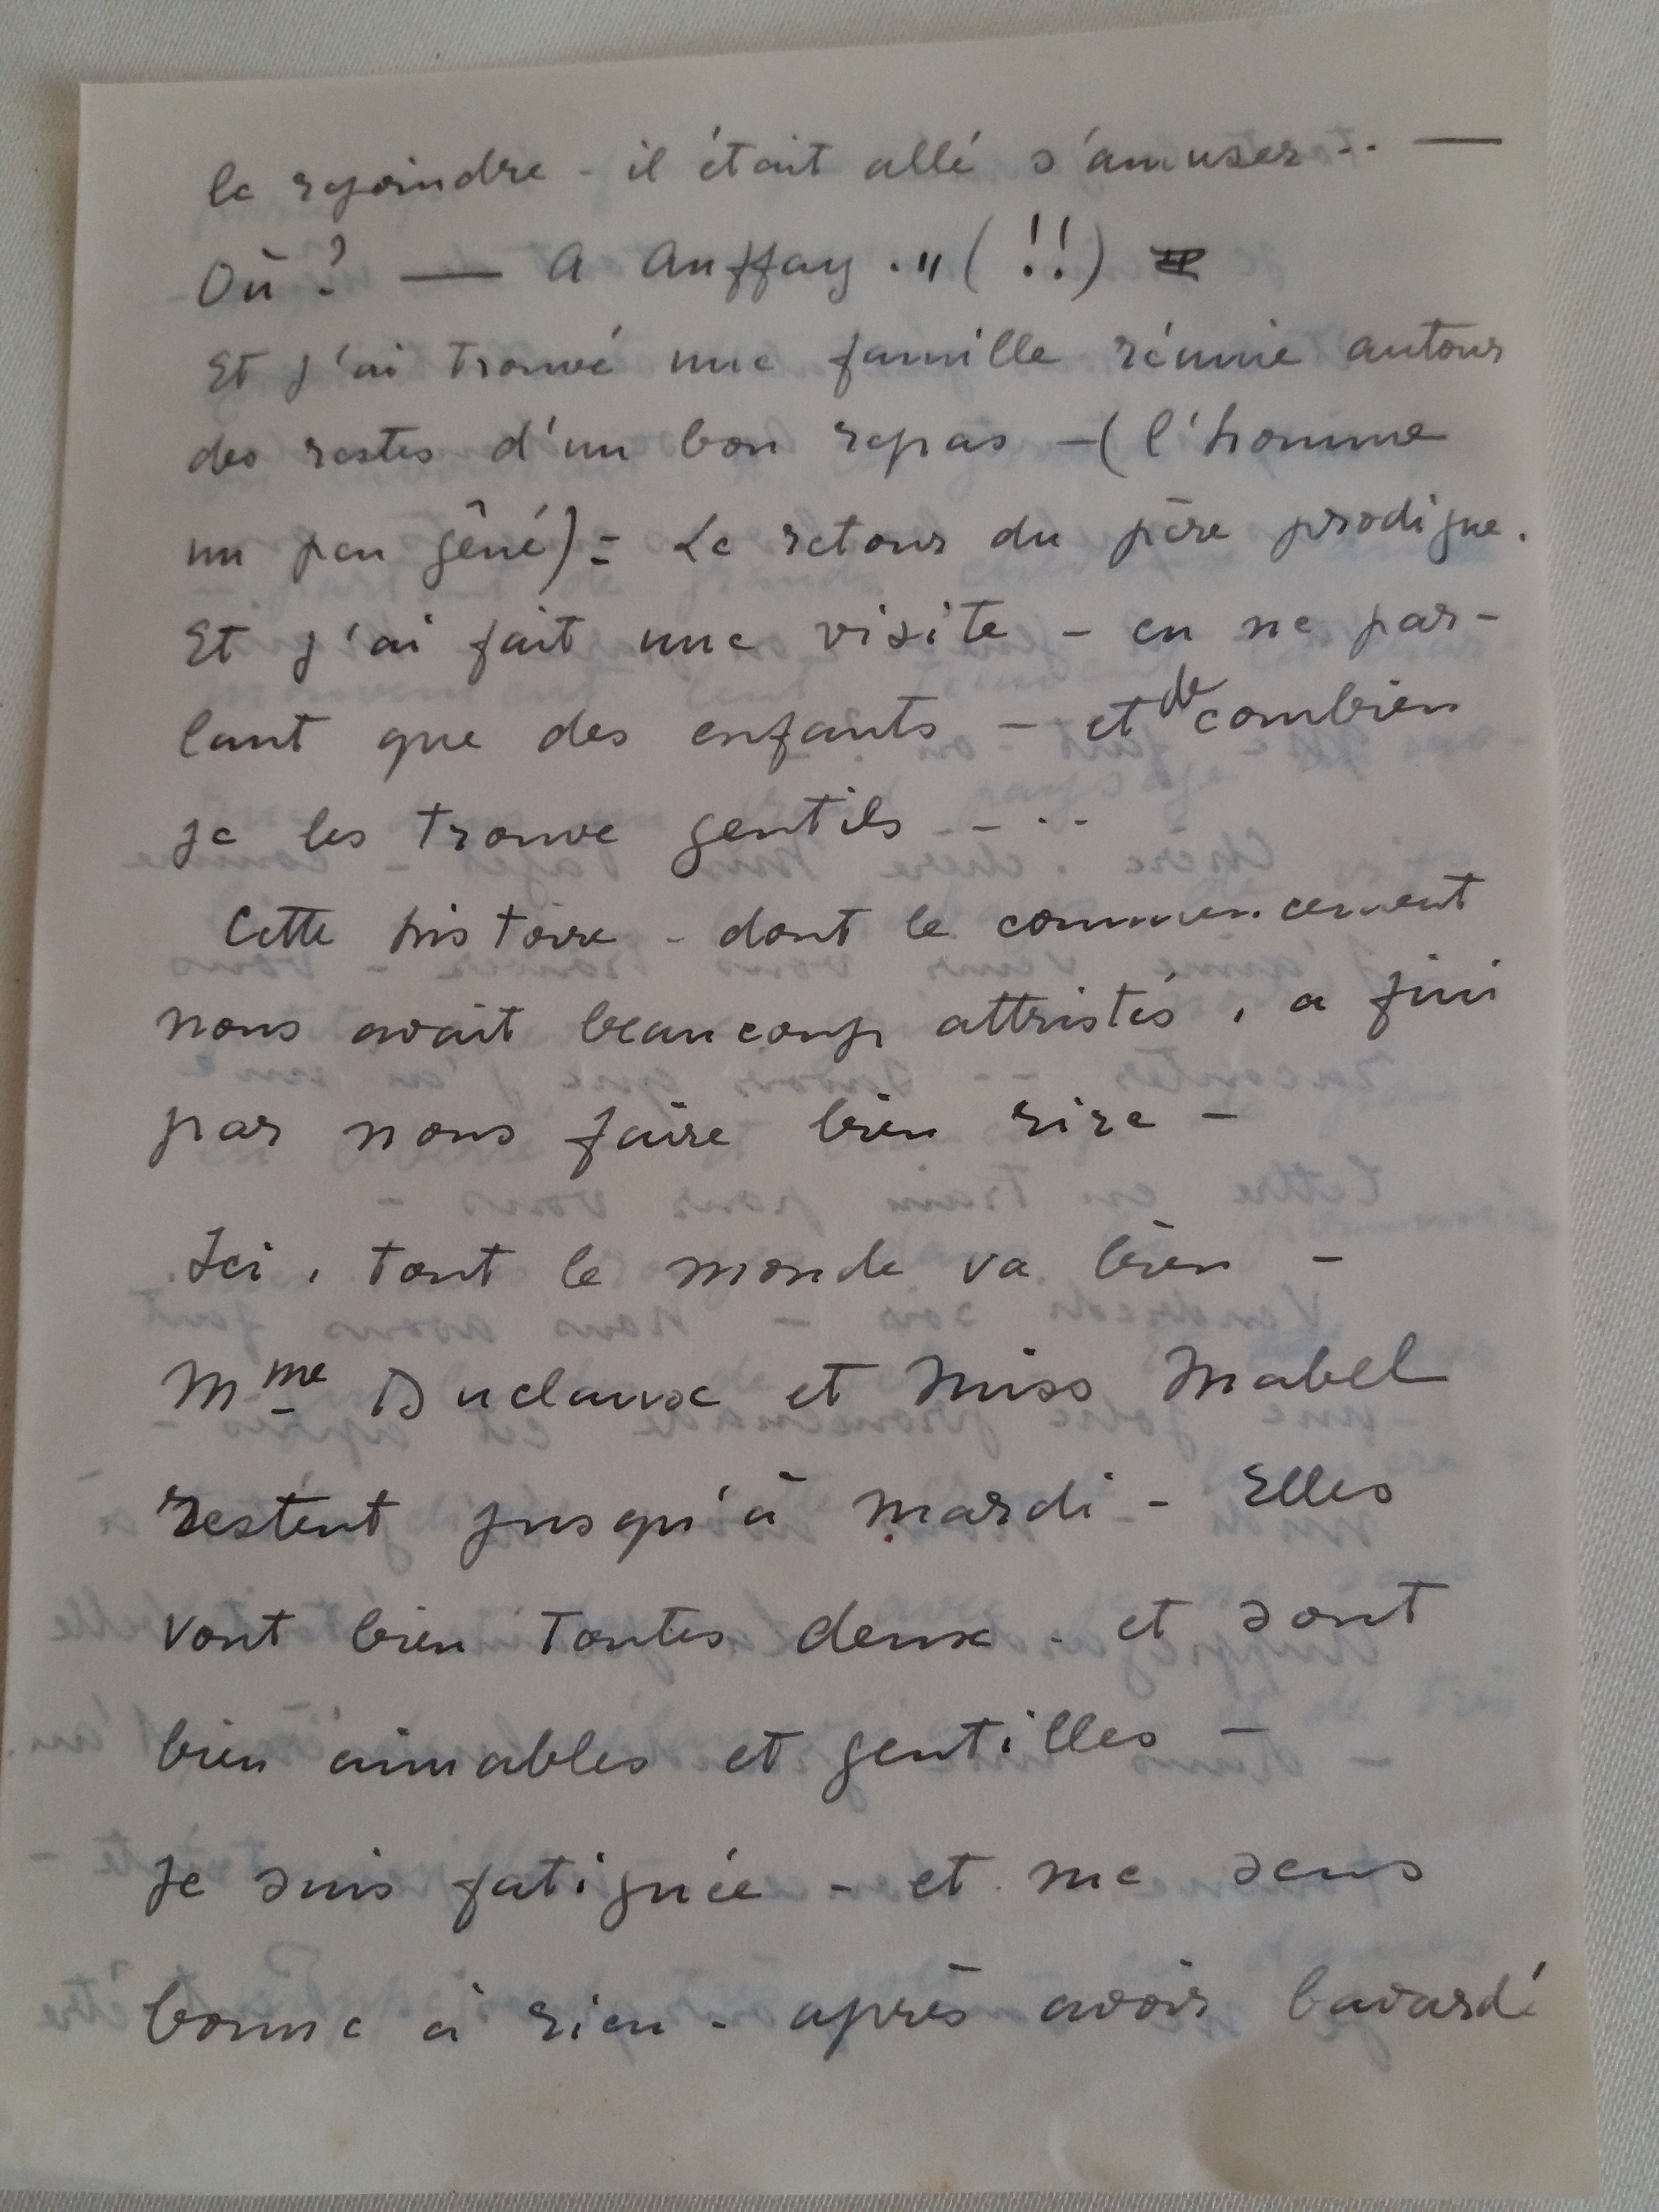 le rejoindre - il était allé s'amuser... —
Où ? — A Auffay ." (!!)
Et j'ai trouvé une famille réunie autour
des restes d'un bon repas - (l'homme
un peu gêné) = Le retour du père prodigue.
Et j'ai fait une visite - en ne par-
lant que des enfants - et de combien
je les trouve gentils - - . .
Cette histoire - dont le commencement
nous avait beaucoup attristés, a fini
par nous faire bien rire -
Ici, tout le monde va bien -
Mme Duclaux et Miss Mabel
restent jusqu'à mardi - Elles
vont bien toutes deux - et sont
bien aimables et gentilles -
Je suis fatiguée - et me sens
bonne à rien - après avoir bavardé